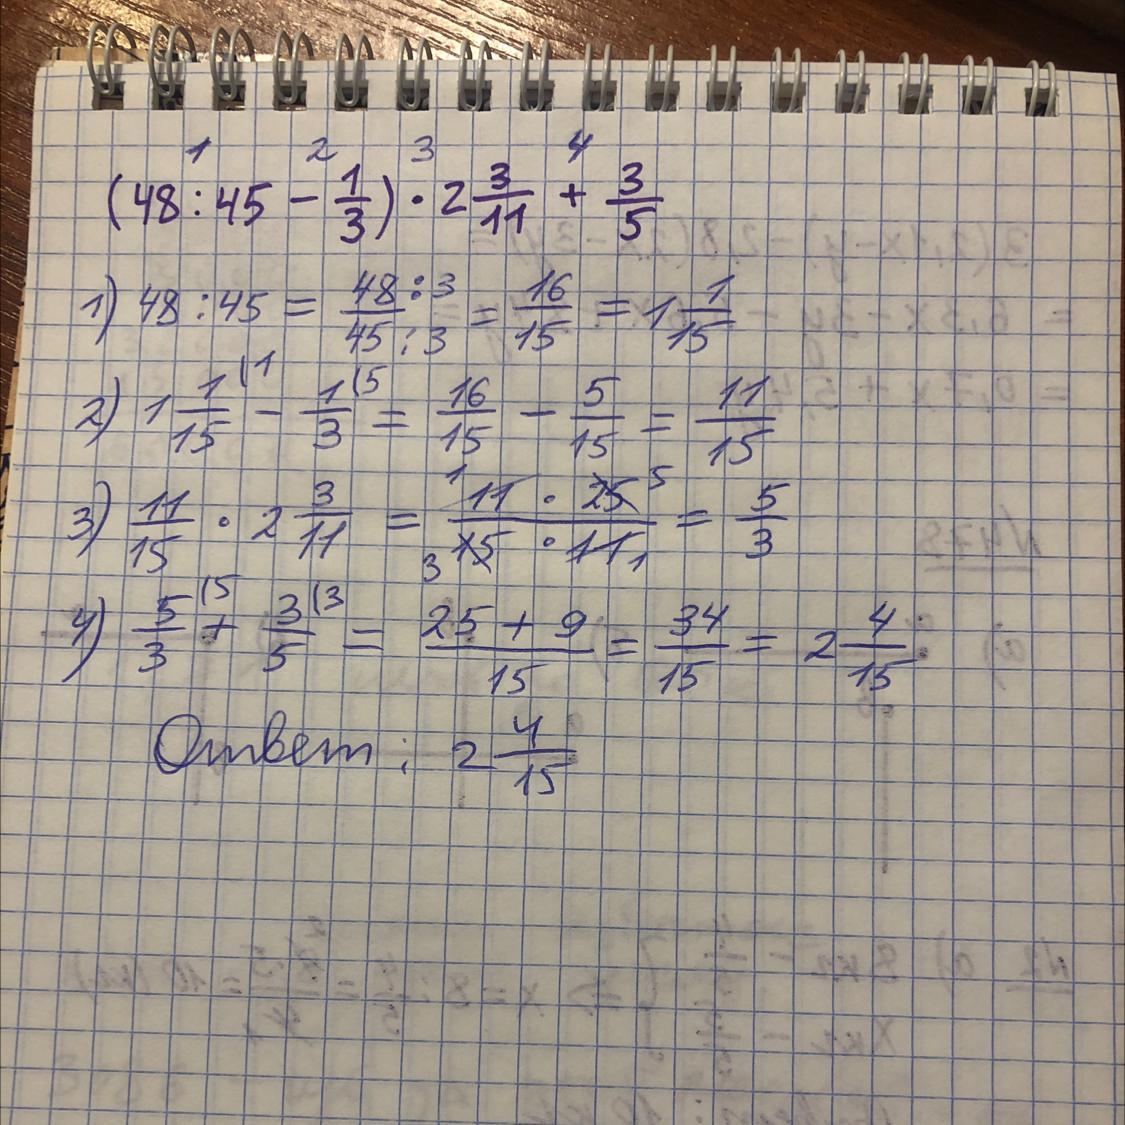 1 2 3 4
(48:45 - 1/3) · 2 3/11 + 3/5
1) 48:45 = 48:3/45:3 = 16/15 = 1 1/15
2) 1 1/15 (1 - 1/3 (5 = 16/15 - 5/15 = 11/15
3) 11/15 · 2 3/11 = 1 11 · 25 5/3 15 · 11 1 = 5/3
4) 5/3 (5 + 3/5 (3 = 25 + 9/15 = 34/15 = 2 4/15
Ответ: 2 4/15